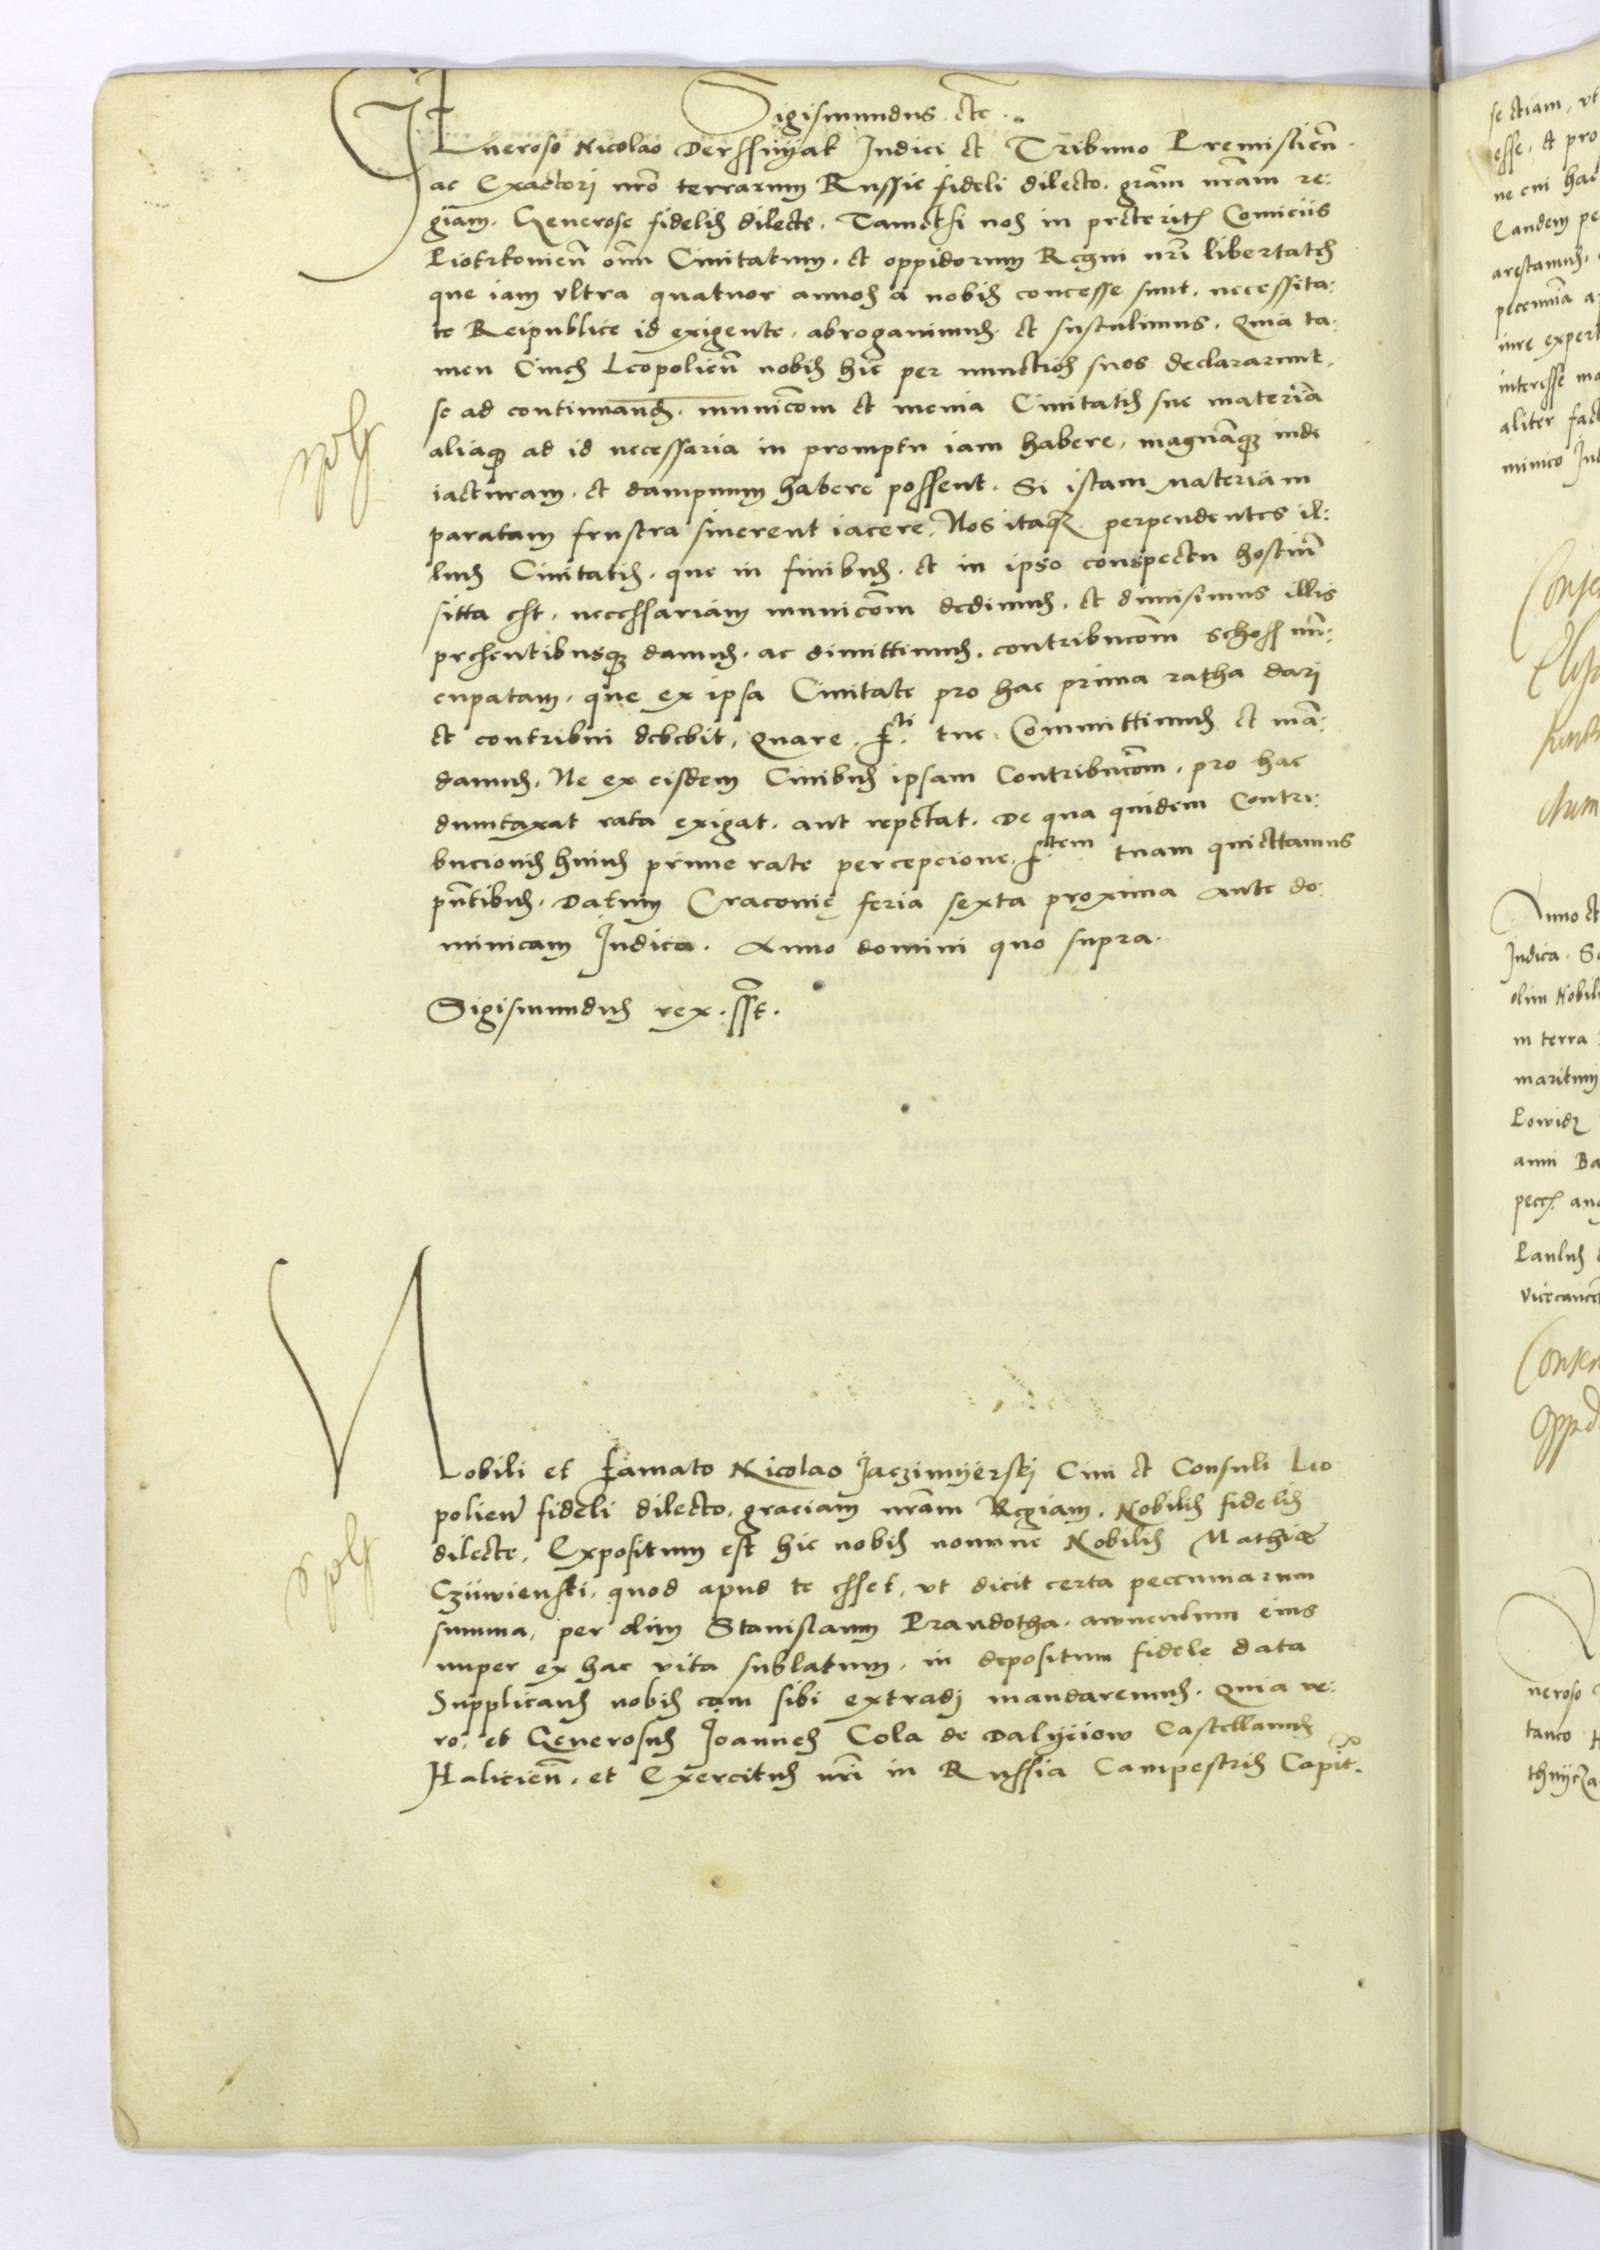 Sigismundus etc.
Generoso Nicolao Derssnyak Judici et Tribuno Premislien̄
ac Exactori nr̄o terrarum Russie fideli dilecto. grām nrām re:
giam. Generose fidelis dilecte. Tametsi nos in preterit) Comiciis
Piotrkovien̄ om̄ Civitatum. et oppidorum Regni nr̄i libertates
que iam ultra quatuor annos a nobis concesse sunt. necessita:
te Reipublice id exigente. abrogavimus et sustulimus. Quia ta:
men Cives Leopolien̄ nobis hic per nunctios suos declararunt.
se ad continuandum municōm et menia Civitatis sue materiam
aliaq) ad id necessaria in promptu iam habere, magnāq) inde
iacturam. et dampnum habere possent. Si istam materiam
paratam frustra sinerent iacere. Nos itaq) perpendentes il:
lius Civitatis. que in finibus. et in ipso conspectu hostium
sitta est. necessariam municōm dedimus. et dimisimus illis
presentibusq) damus. ac dimittimus. contribucōm schoss nū:
cupatam. que ex ipsa Civitate pro hac prima ratha dari
et contribui debebit. Quare. f.ti tue Committimus et mā:
damus. Ne ex eisdem Civibus ipsam Contribucōm. pro hac
dumtaxat rata exigat. aut repetat. De qua quidem Contri:
bucionis huius prime rate percepcione. f.tem tuam quiettamus
pn̄tibus. Datum Cracovię feria sexta proxima ante do
minicam Judica. Anno domini quo supra.
Sigismundus rex. sst.
Nobili et famato Nicolao Jaczimyerskj Civi et Consuli Leo
polien̄ fideli dilecto. graciam nrām Regiam. Nobilis fidelis
dilecte. Expositum est hic nobis nomine Nobilis Mathiæ
Czuwienski. quod apud te esset, ut dicit certa peccuniarum
summa, per olim Stanislaum Prandotha. awunculum eius
nuper ex hac vita sublatum. in depositum fidele data
Supplicans nobis eam sibi extradj mandaremus. Quia ve:
ro. et Generosus Joannes Cola de Dalyeiow Castellanus
Halicien̄. et Exercitus nr̄i in Russia Campestris Capit̄.